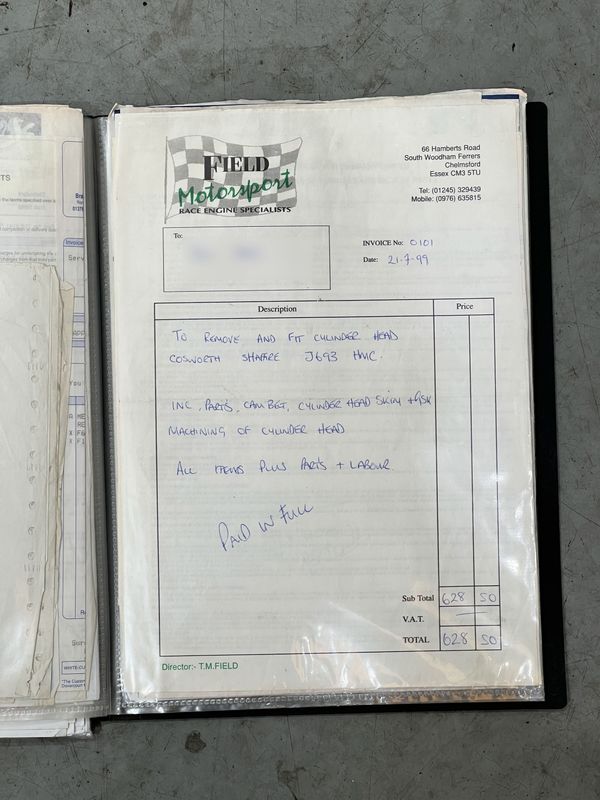 FIELD
Motorsport
RACE ENGINE SPECIALISTS
66 Hamberts Road
South Woodham Ferrers
Chelmsford
Essex CM3 5TU
Tel: (01245) 329439
Mobile: (0976) 635815
To:
INVOICE No: 0101
Date: 21-7-99
Description Price
TO REMOVE AND FIT CYLINDER HEAD
COSWORTH J693 HMC.
INC, PARTS, CAM BELT, CYLINDER HEAD SKIM +
MACHINING OF CYLINDER HEAD
ALL ITEMS PLUS PARTS + LABOUR.
PAID IN FULL
Sub Total 628 50
V.A.T. —
TOTAL 628 50
Director:- T.M.FIELD